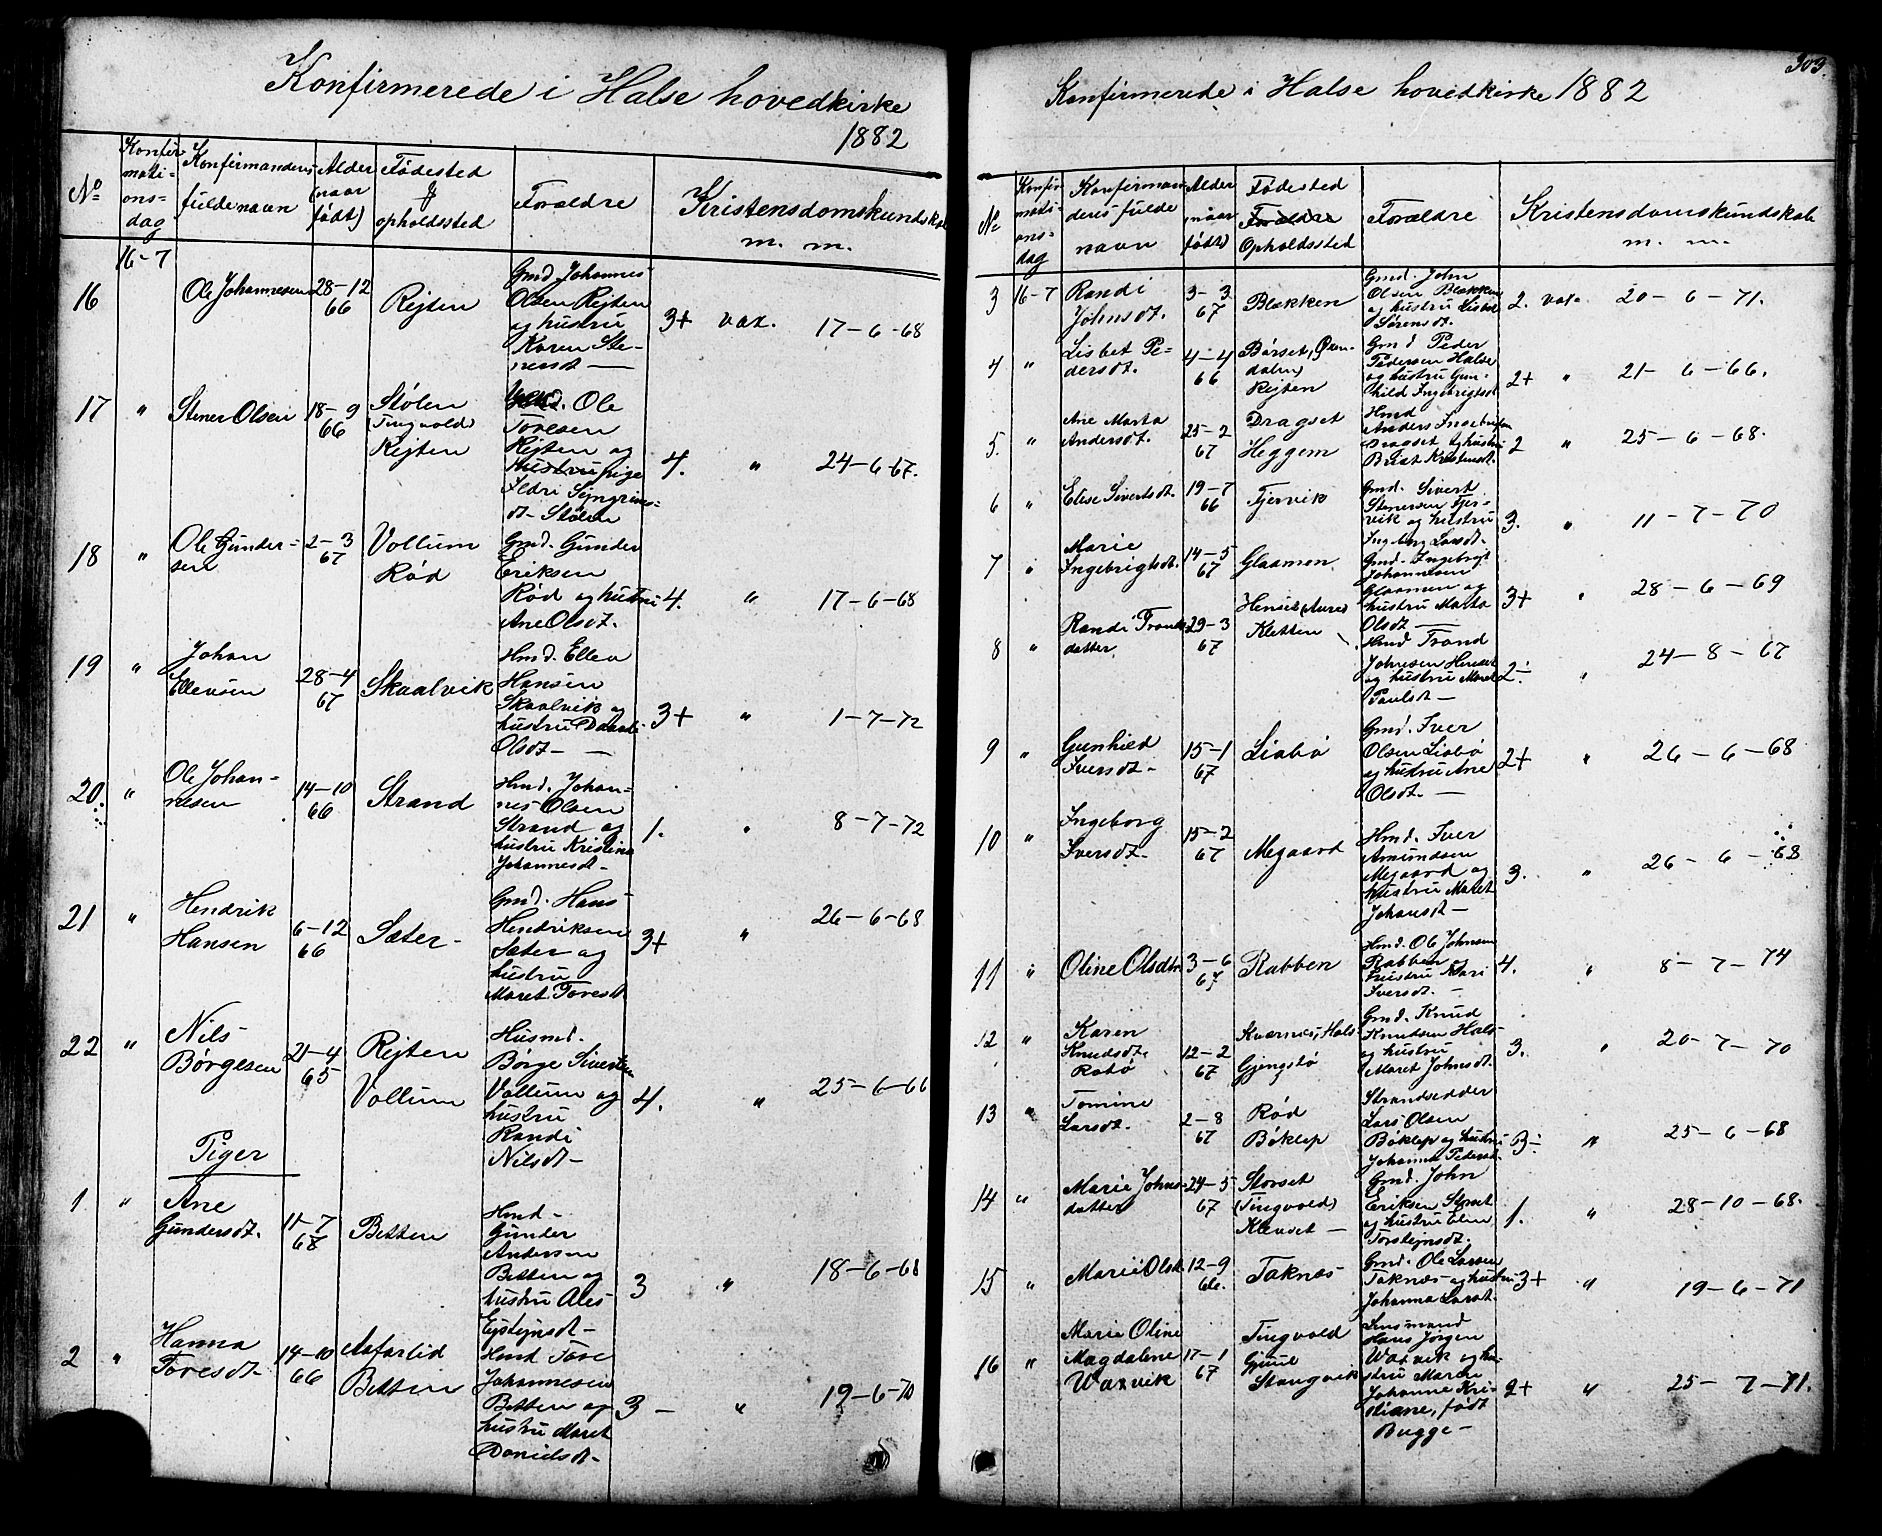 Konfirmerede i Halse hovedkirke
1882
No
Konfir
mati-
ons-
dag
Konfirmandens
fulde navn
Alder
(naar
født)
Fødested
&
opholdssted
Forældre
Kristendomskundskab
m. m.
16-7
16 Ole Johannesen 28-12
66
Rejten
Gmd. Johannes
Olsen Rejten
og hustru
Karen Ste-
nersdt —
3+ vax. 17-6-68
17 " Stener Olsen 18-9
66
Stølen
(Tingvold)
Rejten
Ole
Toresen
Rejten og
pige
Ildri
dt- Stølen
4. " 24-6-67.
18 " Ole Gunder-
sen
2-3
67
Vollum
Rød
Gmd. Gunder
Eriksen
Rød og hustru
Ane Olsdt.
4. " 17-6-68
19 " Johan
Ellevsen
28-4
67
Skaalvik
Hmd. Ellev
Hansen
Skaalvik og
hustru
Olsdt- —
3+ " 1-7-72
20 " Ole Johan-
nesen
14-10
66
Strand
Hmd. Johan-
nes Olsen
Strand og
hustru Kristine
Johannesdt-
1. " 8-7-72
21 " Hendrik
Hansen
6-12
66
Sæter-
Gmd. Hans
Hendriksen
Sæter og
hustru
Maret Toresdt
3+ " 26-6-68
22 " Nils
Børgesen
21-4
65
Rejten
Vollum
Husmd.
Børge Sivertsen
Vollum og
hustru
Randi
Nilsdt-
4. " 25-6-66
Piger
1 " Ane
Gundersdt.
11-7
68
Betten
Hmd-
Gunder
Andersen
Betten og
hustru Ales
Ejstejnsdt-
3 " 18-6-68
2 " Hanna
Toresdt-
14-10
66
Aafarlid
Betten
Hmd Tore
Johannesen
Betten og
hustru Maret
Danielsdt-
3- " 19-6-70
303.
Konfirmerede i Halse hovedkirke 1882
No
Konfir
mati-
ons-
dag
Konfirman-
dens fulde
navn
Alder
(naar
født)
Fødested
Forældre
Opholdssted
Forældre
Kristendomskundskab
m. m.
3 16-7 Randi
Johnsdt.
3-3
67
Blekken
Gmd. John
Olsen Blekken
og hustru Lisbet
Sørensdt.
2. vax. 20-6-71.
4 " Lisbet Pe-
dersdt.
4-4
66
Børset, Øxen-
dalen)
Rejten
Gmd Peder
Pedersen Halse
og hustru Gun-
hild Ingebrigtsdt
2+ " 21-6-66.
5. " Ane Marta
Andersdt.
25-2
67
Dragset
Heggem
Hmd
Anders Ingebrigtsen
Dragset og hustru
Brit Kristensdt.
2 " 25-6-68.
6 " Elise Sivertsdt. 19-7
66
Fjervik
Gmd. Sivert
Stenersen Fjer-
vik og hustru
Ingeborg Larsdt-
3. " 11-7-70
7 " Marie
Ingebrigtsdt.
14-5
67
Glaamen
Gmd. Ingebrigt
Johannesen
Glaamen og
hustru Marta
Olsdt —
3+ " 28-6-69
8 " Randi Tronds
datter
29-3
67
Henset (Aure)
Kletten
Hmd Trond
Johnsen Henset
og hustru Maret
Paulsdt —
2- " 24-8-67
9 " Gunhild
Iversdt-
15-1
67
Liabø
Gmd. Iver
Olsen Liabø
og hustru Ane
Olsdt. —
2+ " 26-6-68
10 " Ingeborg
Iversdt-
15-2
67
Megaard
Hmd. Iver
Amundsen
Megaard og
hustru Maret
Johansdt —
3. " 26-6-68
11 " Oline Olsdtr 3-6
67
Rabben
Hmd. Ole Johnsen
Rabben og
hustru Mari
Iversdt. —
4. " 8-7-74
12 " Karen
Knudsdt.
Botø
12-2
67
Kværnes, Hals-
Gjengstø
Gmd. Knud
Knudsen Hals-
og hustru
Maret Johnsdt.
3. " 20-7-70
13 " Tomine
Larsdt.
2-8
67
Rød
Bøklep
Strandsedder
Lars Olsen
Bøklep og hustru
Johanna Pedersdt-
3- " 25-6-68
14 " Marie Johns-
datter
24-5
67
Storset
(Tingvold)
Klevset —
Gmd. John
Eriksen Storset
og hustru Elen
Torstejnsdt.
1. " 28-10-68.
15 " Marie Olsdt 12-9
66.
Taknes
Gmd. Ole Larsen
Taknes og hustru
Johanna Larsdt.
3+ " 19-6-71
16 " Marie Oline
Magdalene
Waxvik
17-1
67
Tingvold
Gjuul
Stangvik
Lensmand
Hans Jørgen
Waxvik og hu-
stru Maren
Johanne Kri-
stiane, født
Bugge —
2+ " 25-7-71.